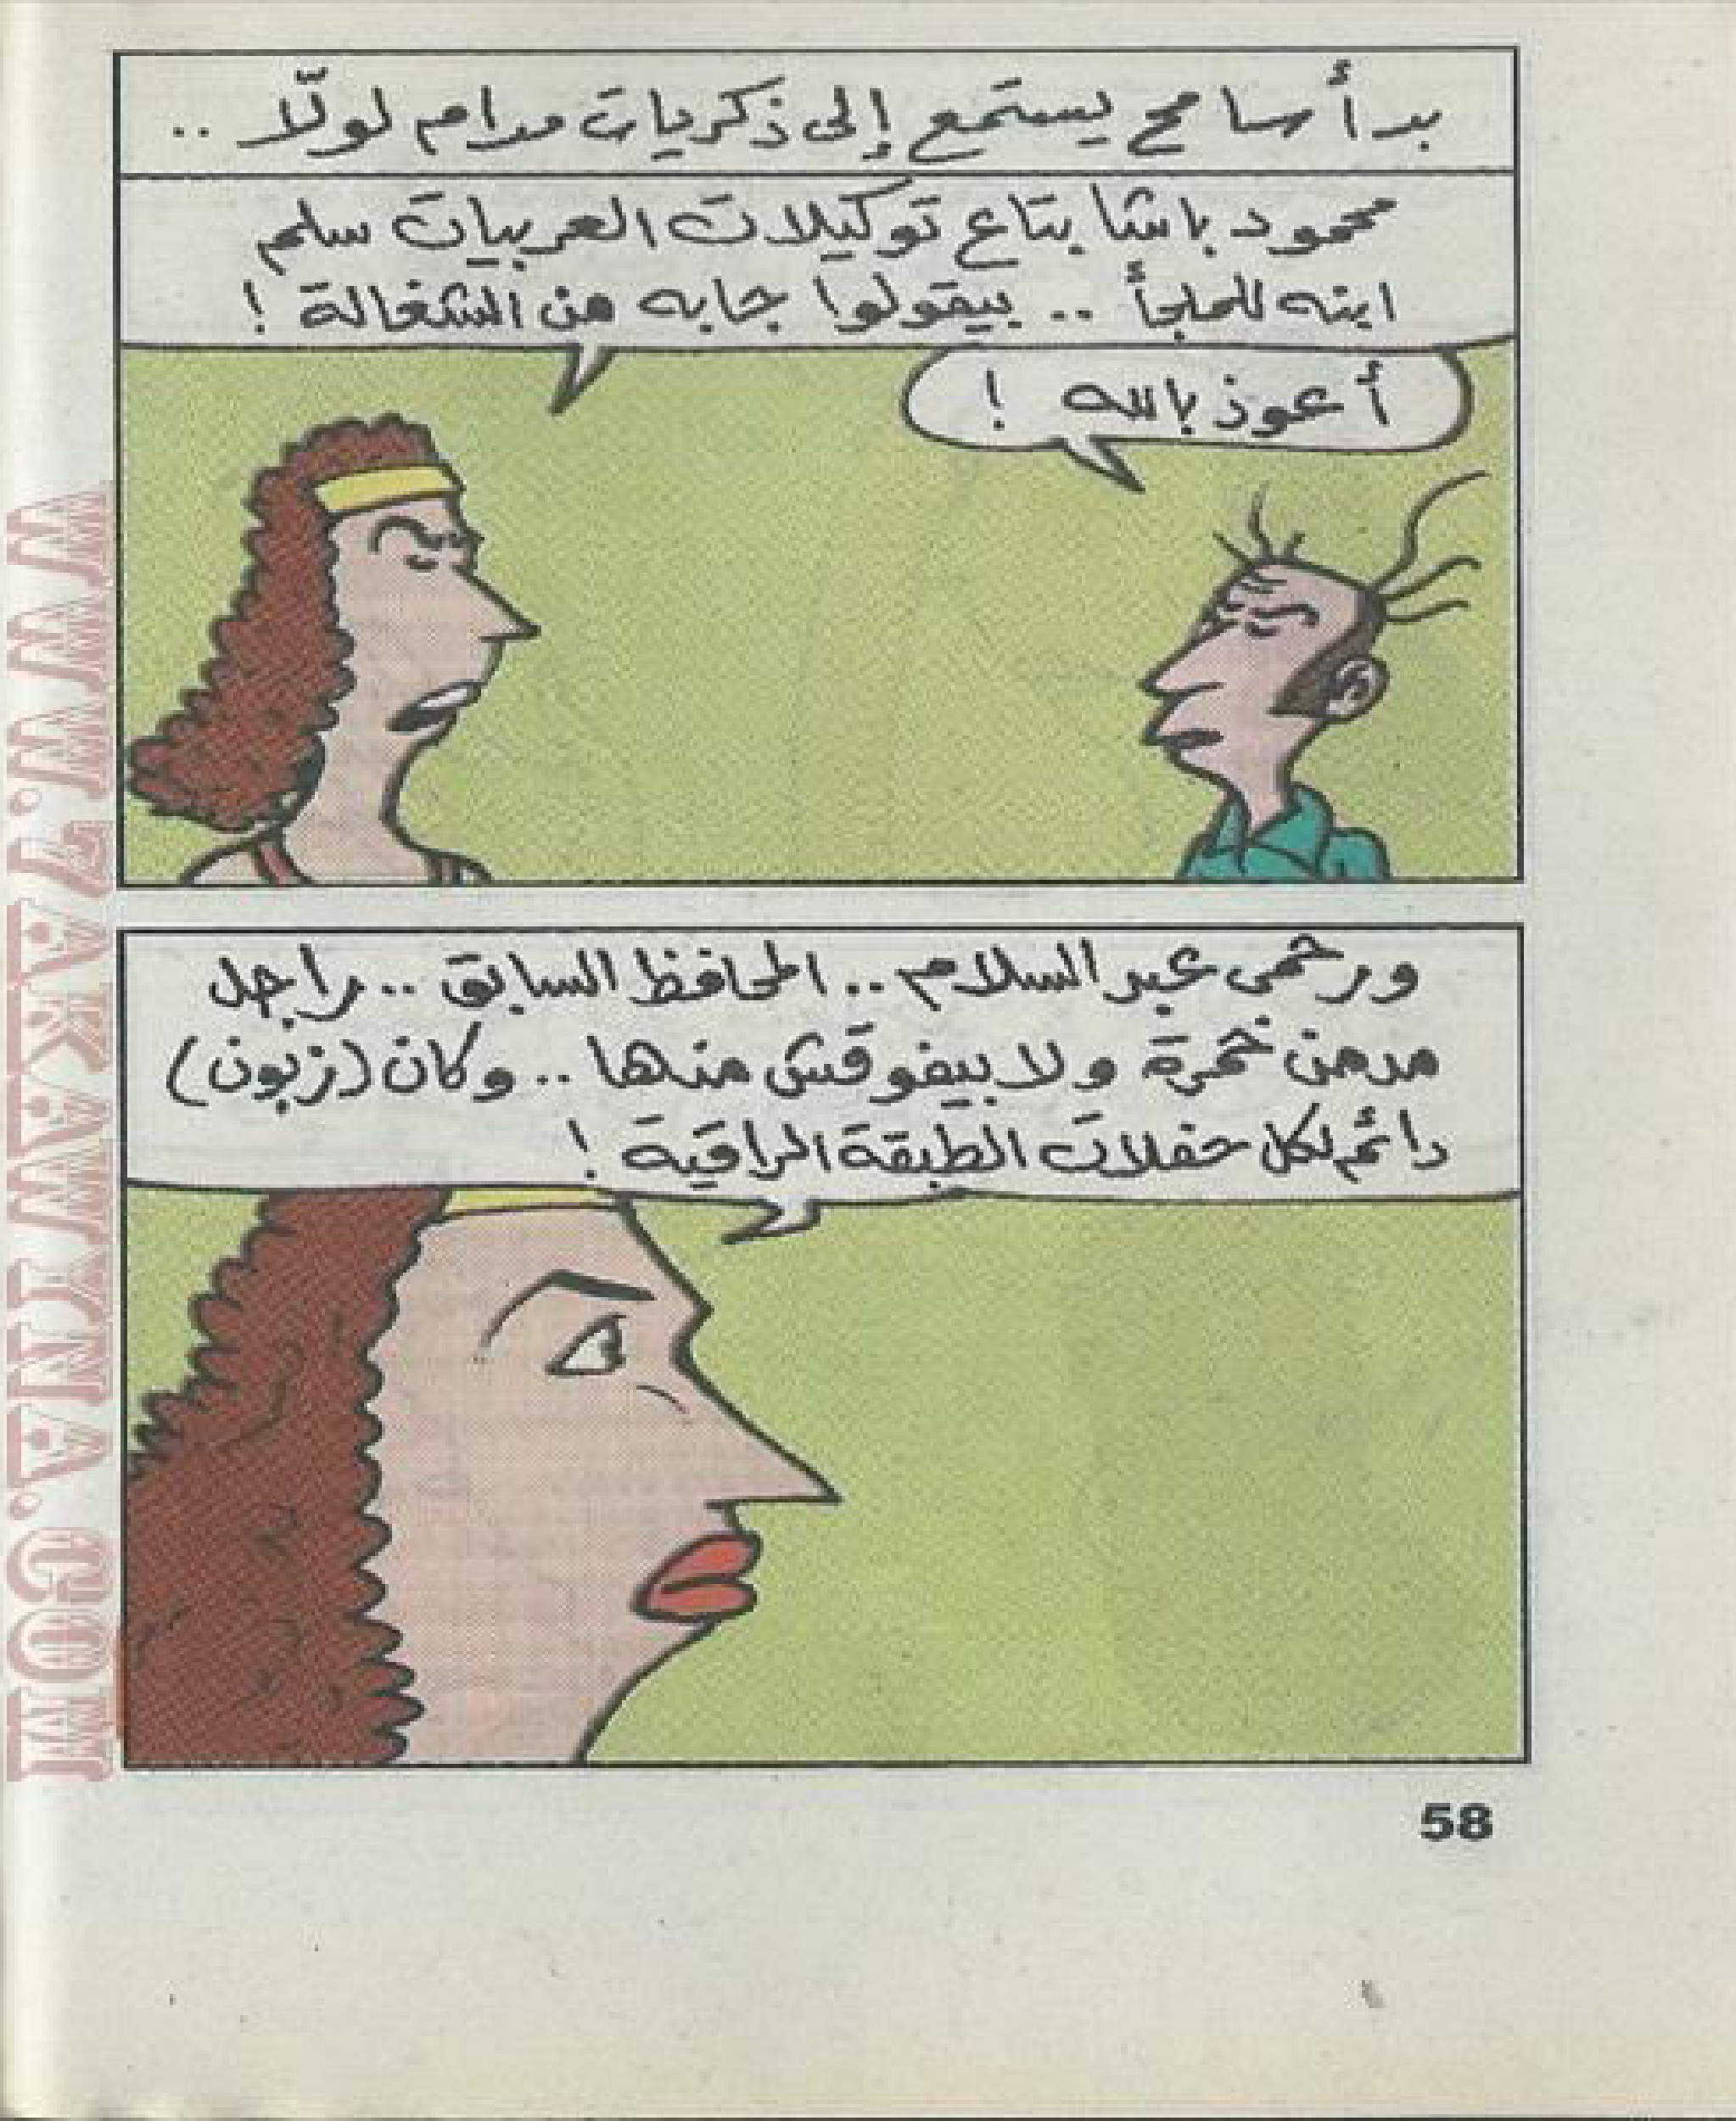 بدأ سامح يستمع إلى ذكريات مدام لولّا ..
محمود باشا بتاع توكيلات العربيات سلم
ابنه للملجأ .. بيقولوا جابه من الشغالة !
أعوذ بالله !
ورحمى عبد السلام .. المحافظ السابق .. راجل
مدمن خمرة ولا بيفوقش منها .. وكان (زبون)
دائم لكل حفلات الطبقة الراقية !
58
WWW.7AKAWTNA.COM